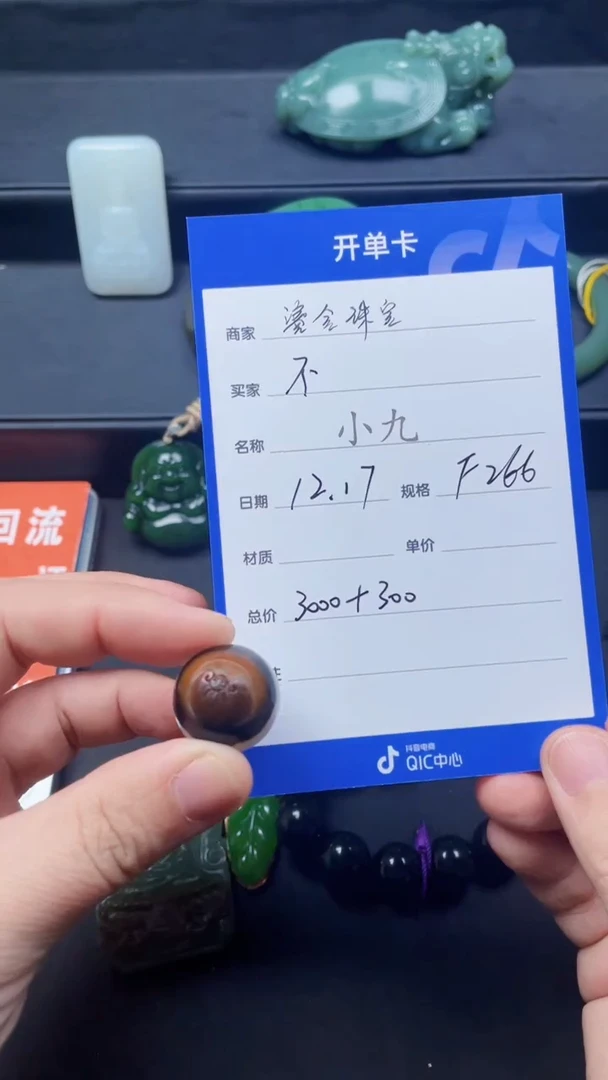 开单卡
商家 鎏金珠宝
买家 不
名称 小九
日期 12.17 规格 F266
材质 单价
总价 3000+300
回流
抖音电商
QIC中心